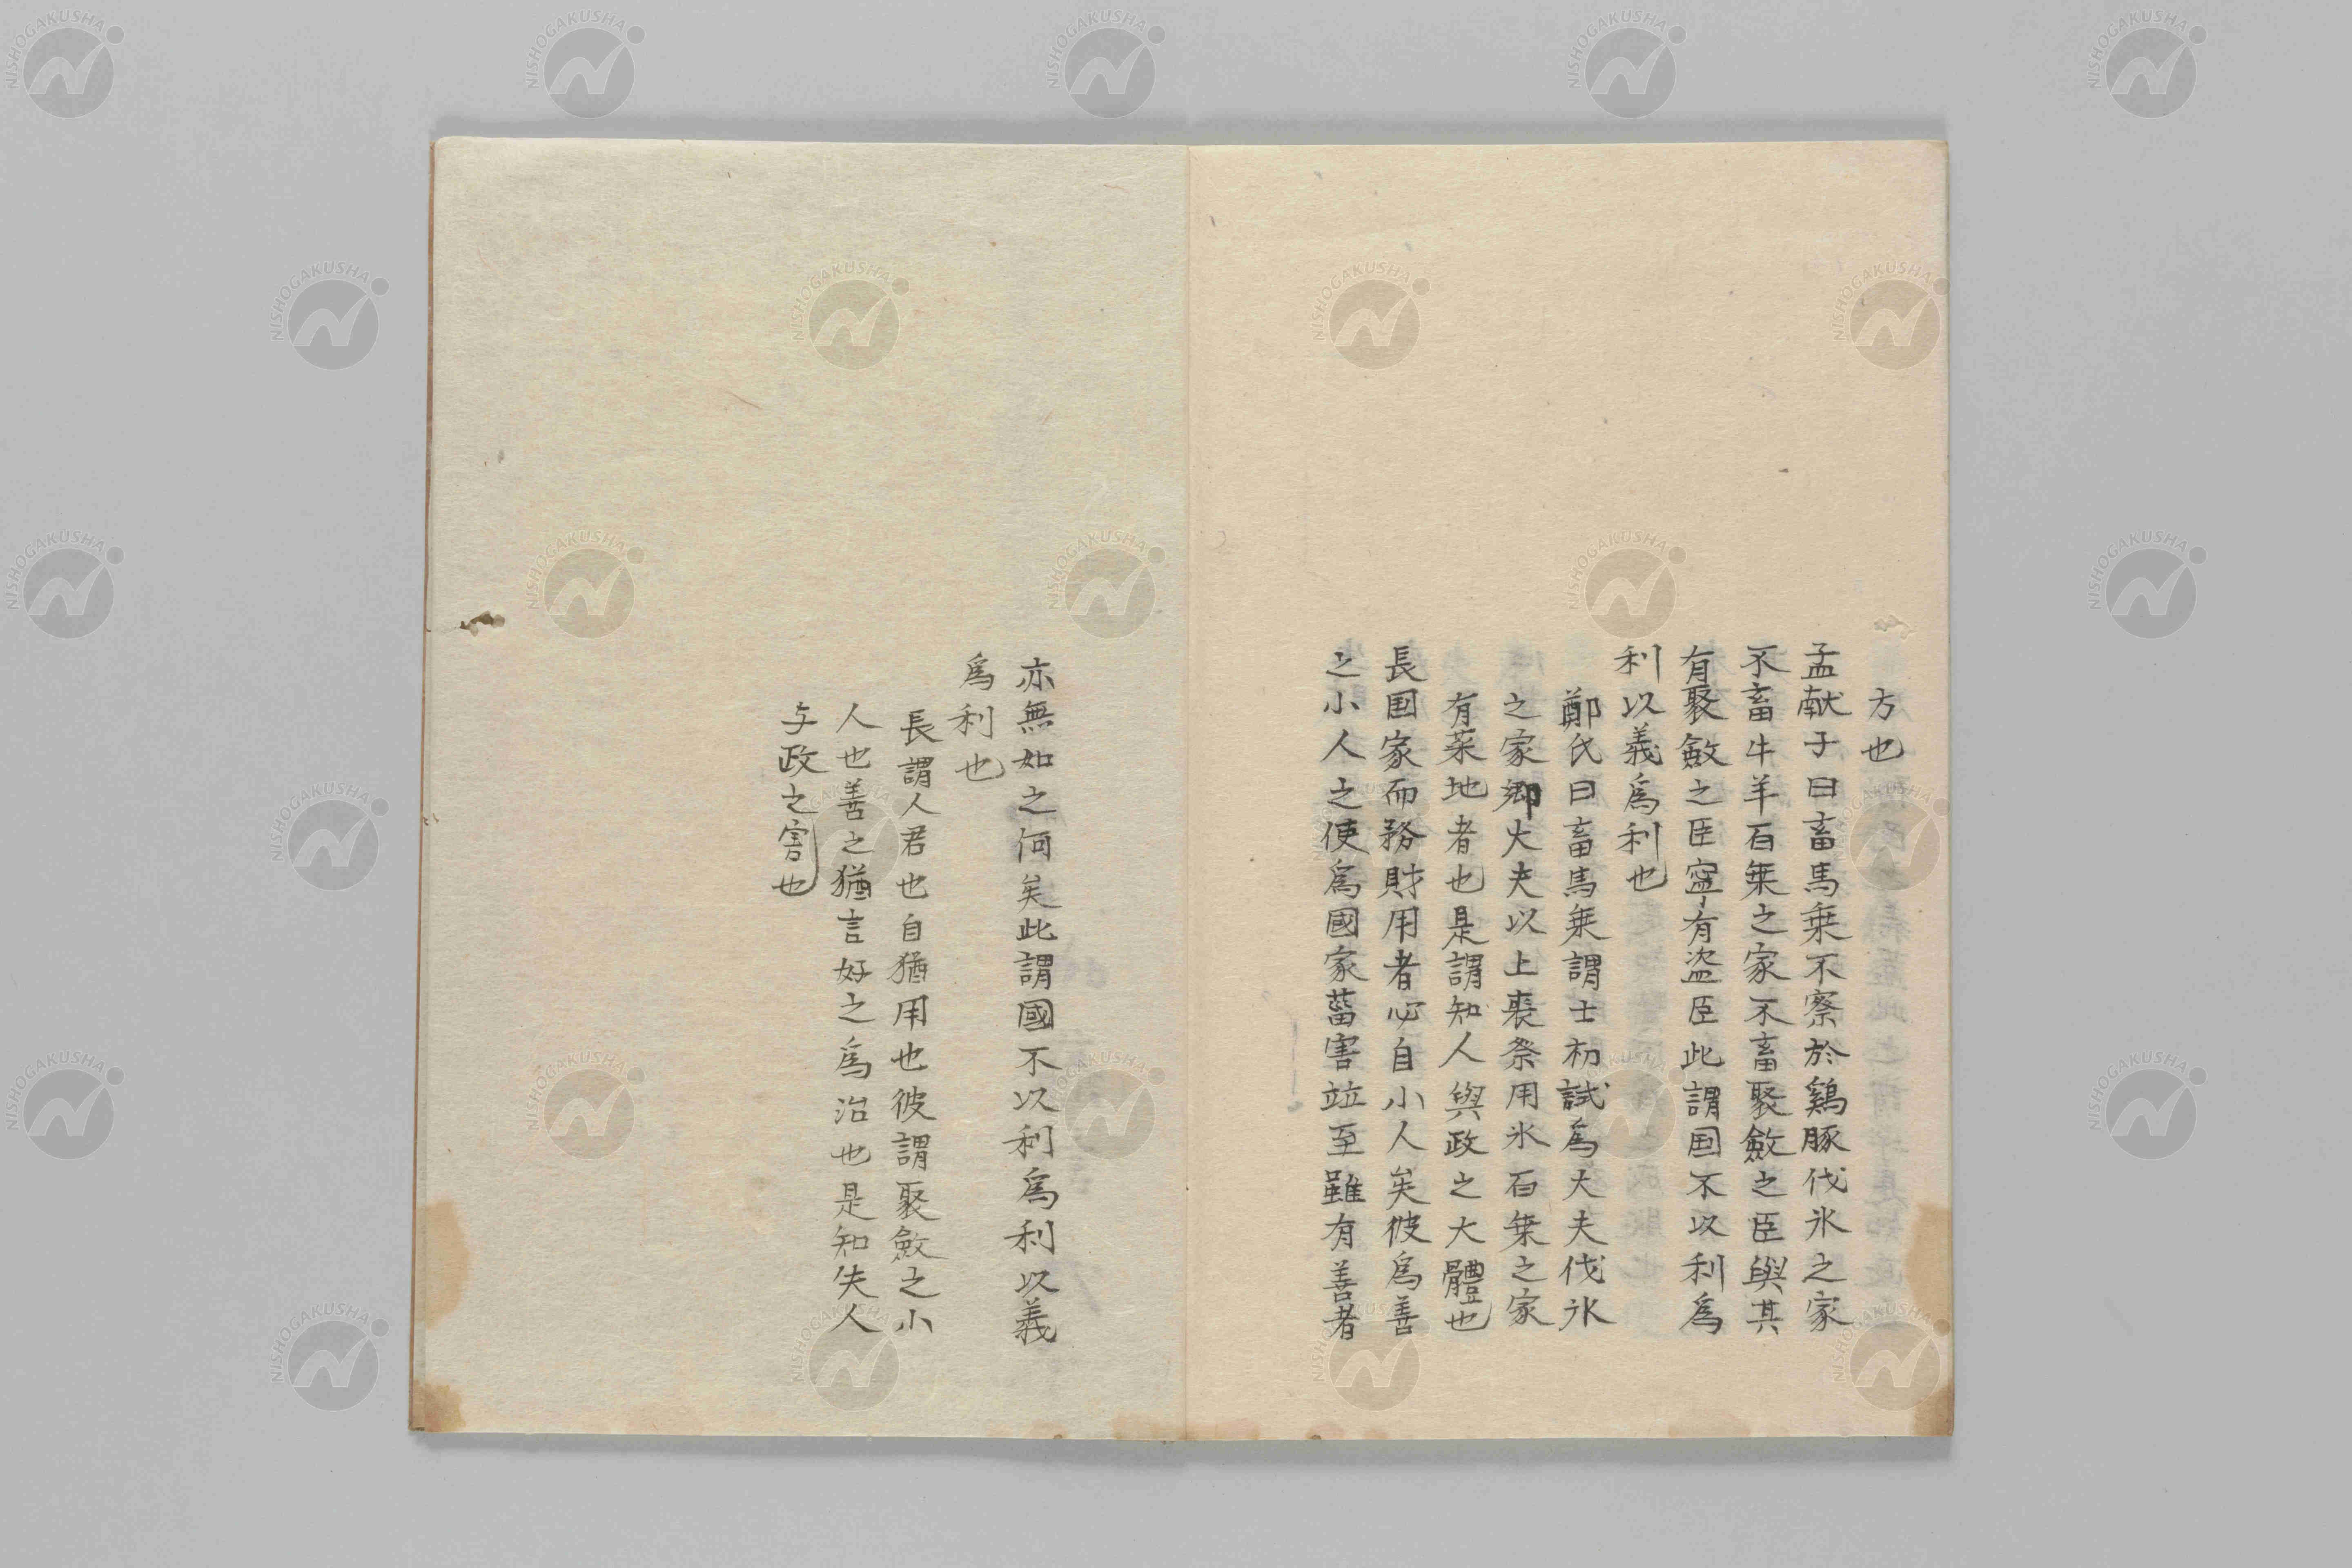 方也
孟献子曰畜馬乗不察於鷄豚伐氷之家
不畜牛羊百乗之家不畜聚斂之臣與其
有聚斂之臣寧有盗臣此謂国不以利爲
利以義爲利也
鄭氏曰畜馬乗謂士初試爲大夫伐氷
之家郷大夫以上喪祭用氷百乗之家
有菜地者也是謂知人與政之大體也
長国家而務財用者必自小人矣彼爲善
之小人之使爲國家菑害竝至雖有善者
亦無如之何矣此謂國不以利爲利以義
爲利也
長謂人君也自猶用也彼謂聚斂之小
人也善之猶言好之爲治也是知失人
与政之害也
NISHOGAKUSHA